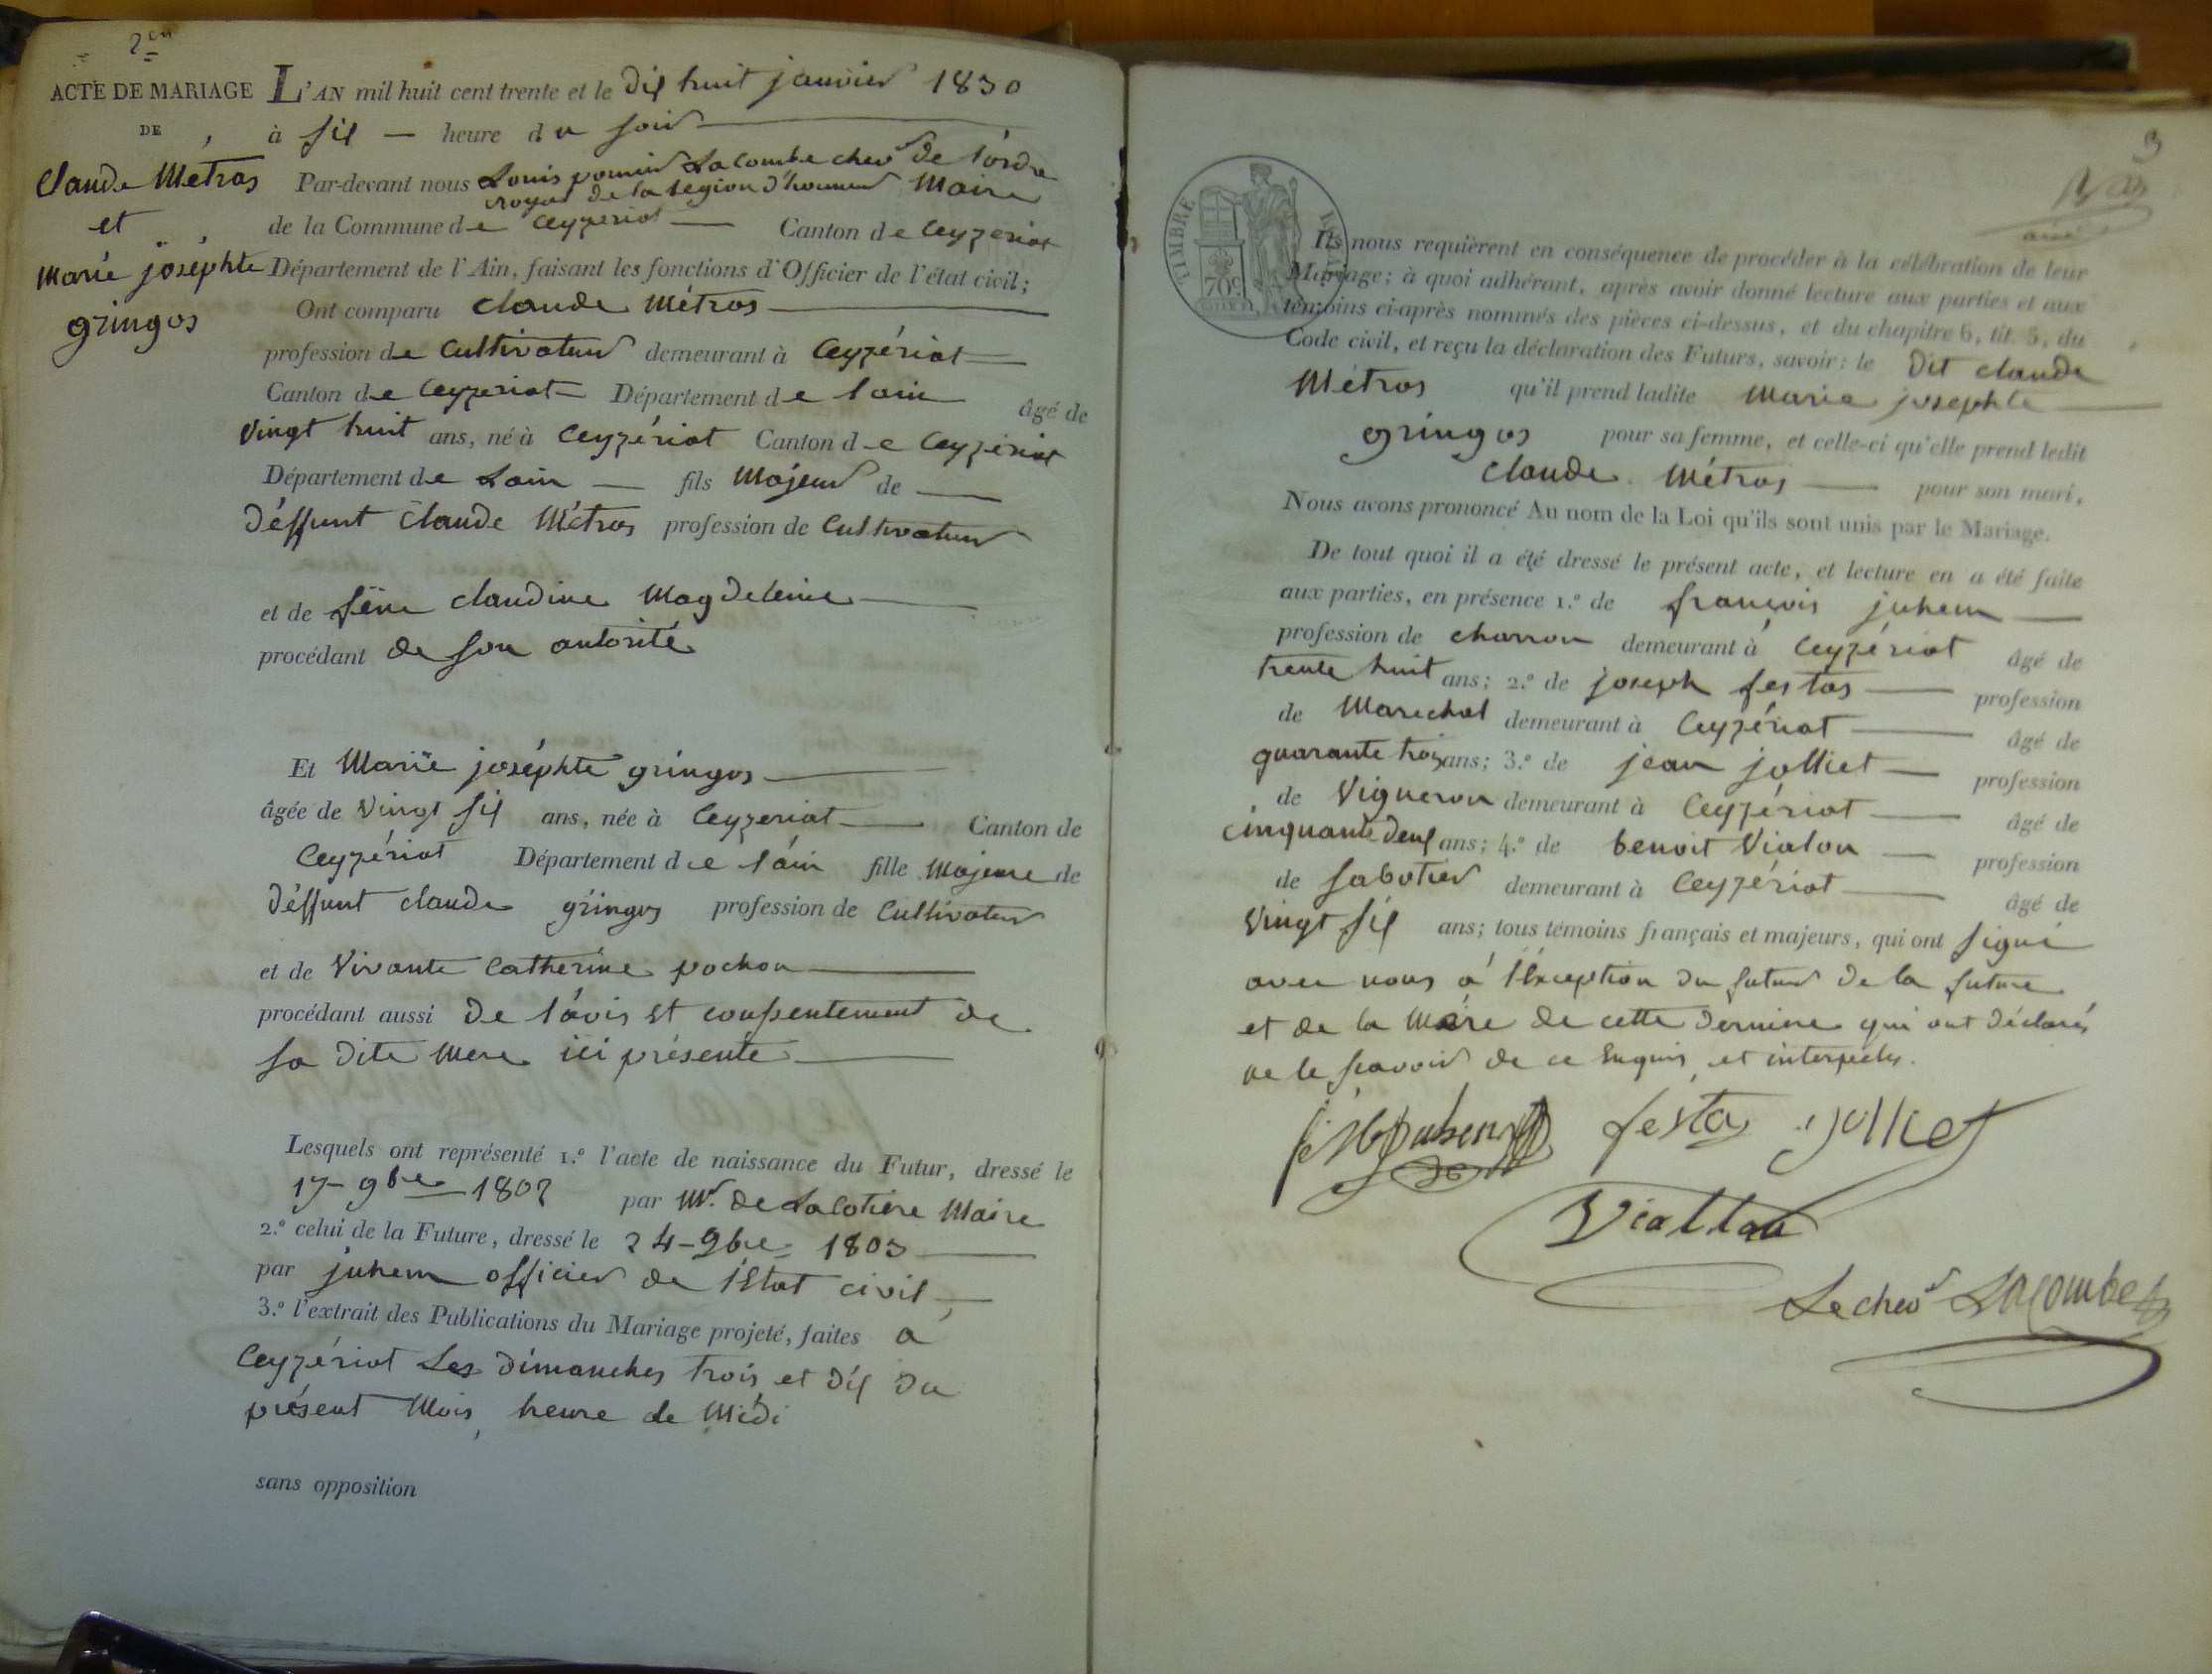 2en
ACTE DE MARIAGE
DE
Claude Métras
et
Marie joséphte
gringos
L'AN mil huit cent trente et le dix huit janvier 1830
à six — heure du soir
Par-devant nous Louis Lacombe chevr de l'ordre
royal de la Legion d'honneur Maire
de la Commune de Ceyzeriat — Canton de Ceyzeriat
Département de l'Ain, faisant les fonctions d'Officier de l'état civil;
Ont comparu Claude Métras
profession de Cultivateur demeurant à Ceyzériat
Canton de Ceyzeriat Département de l'ain âgé de
Vingt huit ans, né à Ceyzériat Canton de Ceyzériat
Département de Lain — fils Majeur de —
déffunt Claude Métras profession de Cultivateur
et de claudine Magdeleine
procédant de son autorité
Et Marie joséphte gringos
âgée de Vingt six ans, née à Ceyzeriat — Canton de
Ceyzériat Département de l'ain fille Majeure de
déffunt claude gringos profession de Cultivateur
et de Vivante Catherine pochon
procédant aussi de l'avis et consentement de
sa dite Mere ici présente
Lesquels ont représenté 1.º l'acte de naissance du Futur, dressé le
17 - 9bre 1802 par Mr. de Lacotiere Maire
2.º celui de la Future, dressé le 24 - 9bre 1803
par juhem officier de l'Etat civil —
3.º l'extrait des Publications du Mariage projeté, faites à
Ceyzériat Les dimanches trois et dix du
présent Mois, heure de Midi
sans opposition
3
TIMBRE ROYAL
70c
Ils nous requièrent en conséquence de procéder à la célébration de leur
Mariage; à quoi adhérant, après avoir donné lecture aux parties et aux
témoins ci-après nommés des pièces ci-dessus, et du chapitre 6, tit. 5, du
Code civil, et reçu la déclaration des Futurs, savoir: le dit claude
Métras qu'il prend ladite Marie josephte
gringos pour sa femme, et celle-ci qu'elle prend ledit
Claude Métras — pour son mari,
Nous avons prononcé Au nom de la Loi qu'ils sont unis par le Mariage.
De tout quoi il a été dressé le présent acte, et lecture en a été faite
aux parties, en présence 1.º de françois juhem —
profession de charron demeurant à Ceyzériat âgé de
trente huit ans; 2.º de joseph festas — profession
de Marechal demeurant à Ceyzériat — âgé de
quarante trois ans; 3.º de jean jolliet — profession
de Vigneron demeurant à Ceyzériat — âgé de
cinquante deux ans; 4.º de benoit Vialon — profession
de Sabotier demeurant à Ceyzériat — âgé de
Vingt six ans; tous témoins français et majeurs, qui ont signé
avec nous à l'exception du futur de la future
et de la Mère de cette derniere qui ont déclarés
ne le scavoir de ce Enquis et interpellés.
juhem festas jolliet
Viallon
Le chevr Lacombe